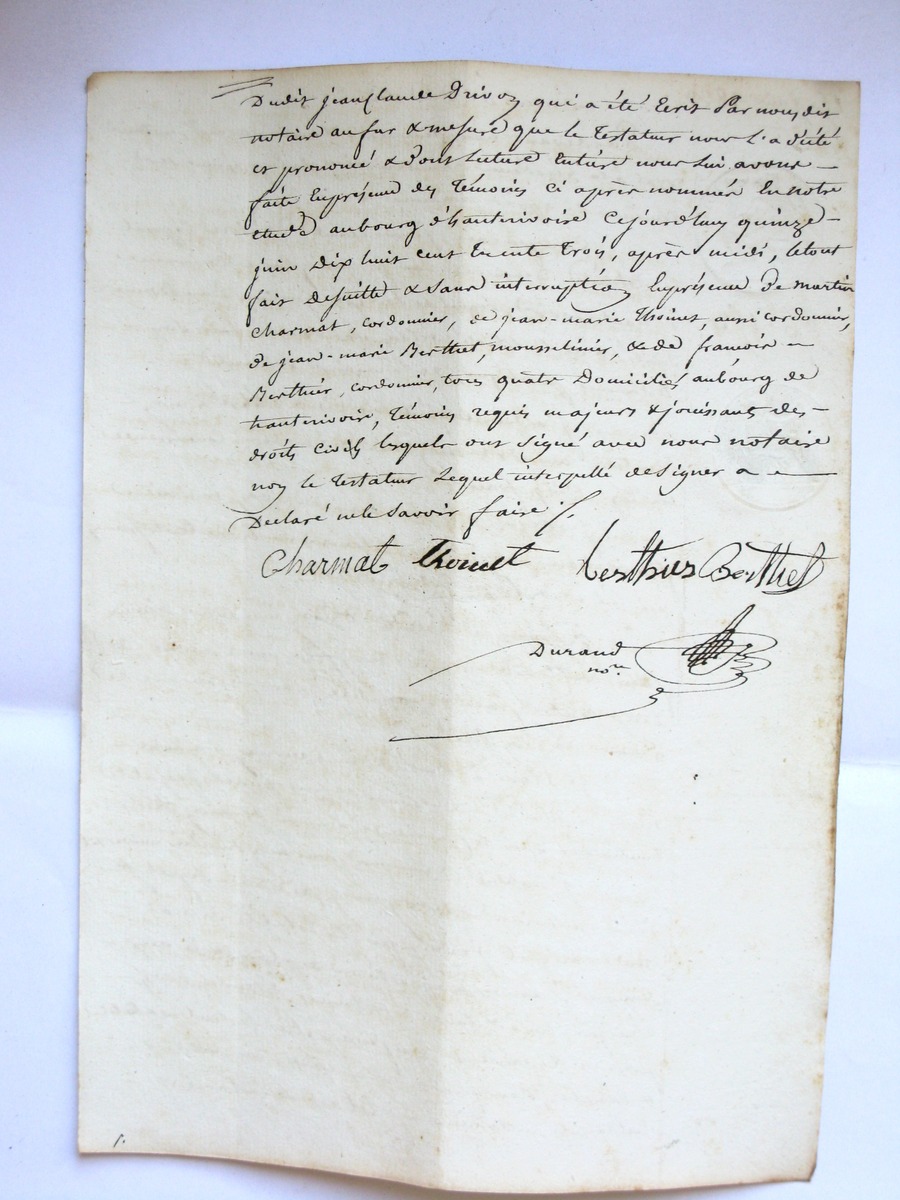 Dudit jean Claude Drivon qui a été Ecrit Par nous, dit
notaire au fur & mesure que le Testateur nous l'a dicté
et prononcé & dont lecture Entière nous lui avons
faite Enprésence des Témoins ci après nommés En notre
étude aubourg d'hauterivoire Cejourd'huy quinze
juin Dix huit cent Trente Trois, après midi, letout
fait desuitte & sans interruption Enprésence de martin
Charmat, cordonnier, de jean-marie Thoinet, aussi cordonnier,
de jean-marie Berthet, mousselinier, & de francois
Berthier, cordonnier, tous quatre Domiciliés aubourg de
hauterivoire, Témoins requis majeurs & jouissants des
droits civils lesquels ont signé avec nous notaire
non le Testateur Lequel interpellé designer a
Déclaré nele Savoir faire ./.
Charmat Thoinet Berthier Berthet
Durand
nore.